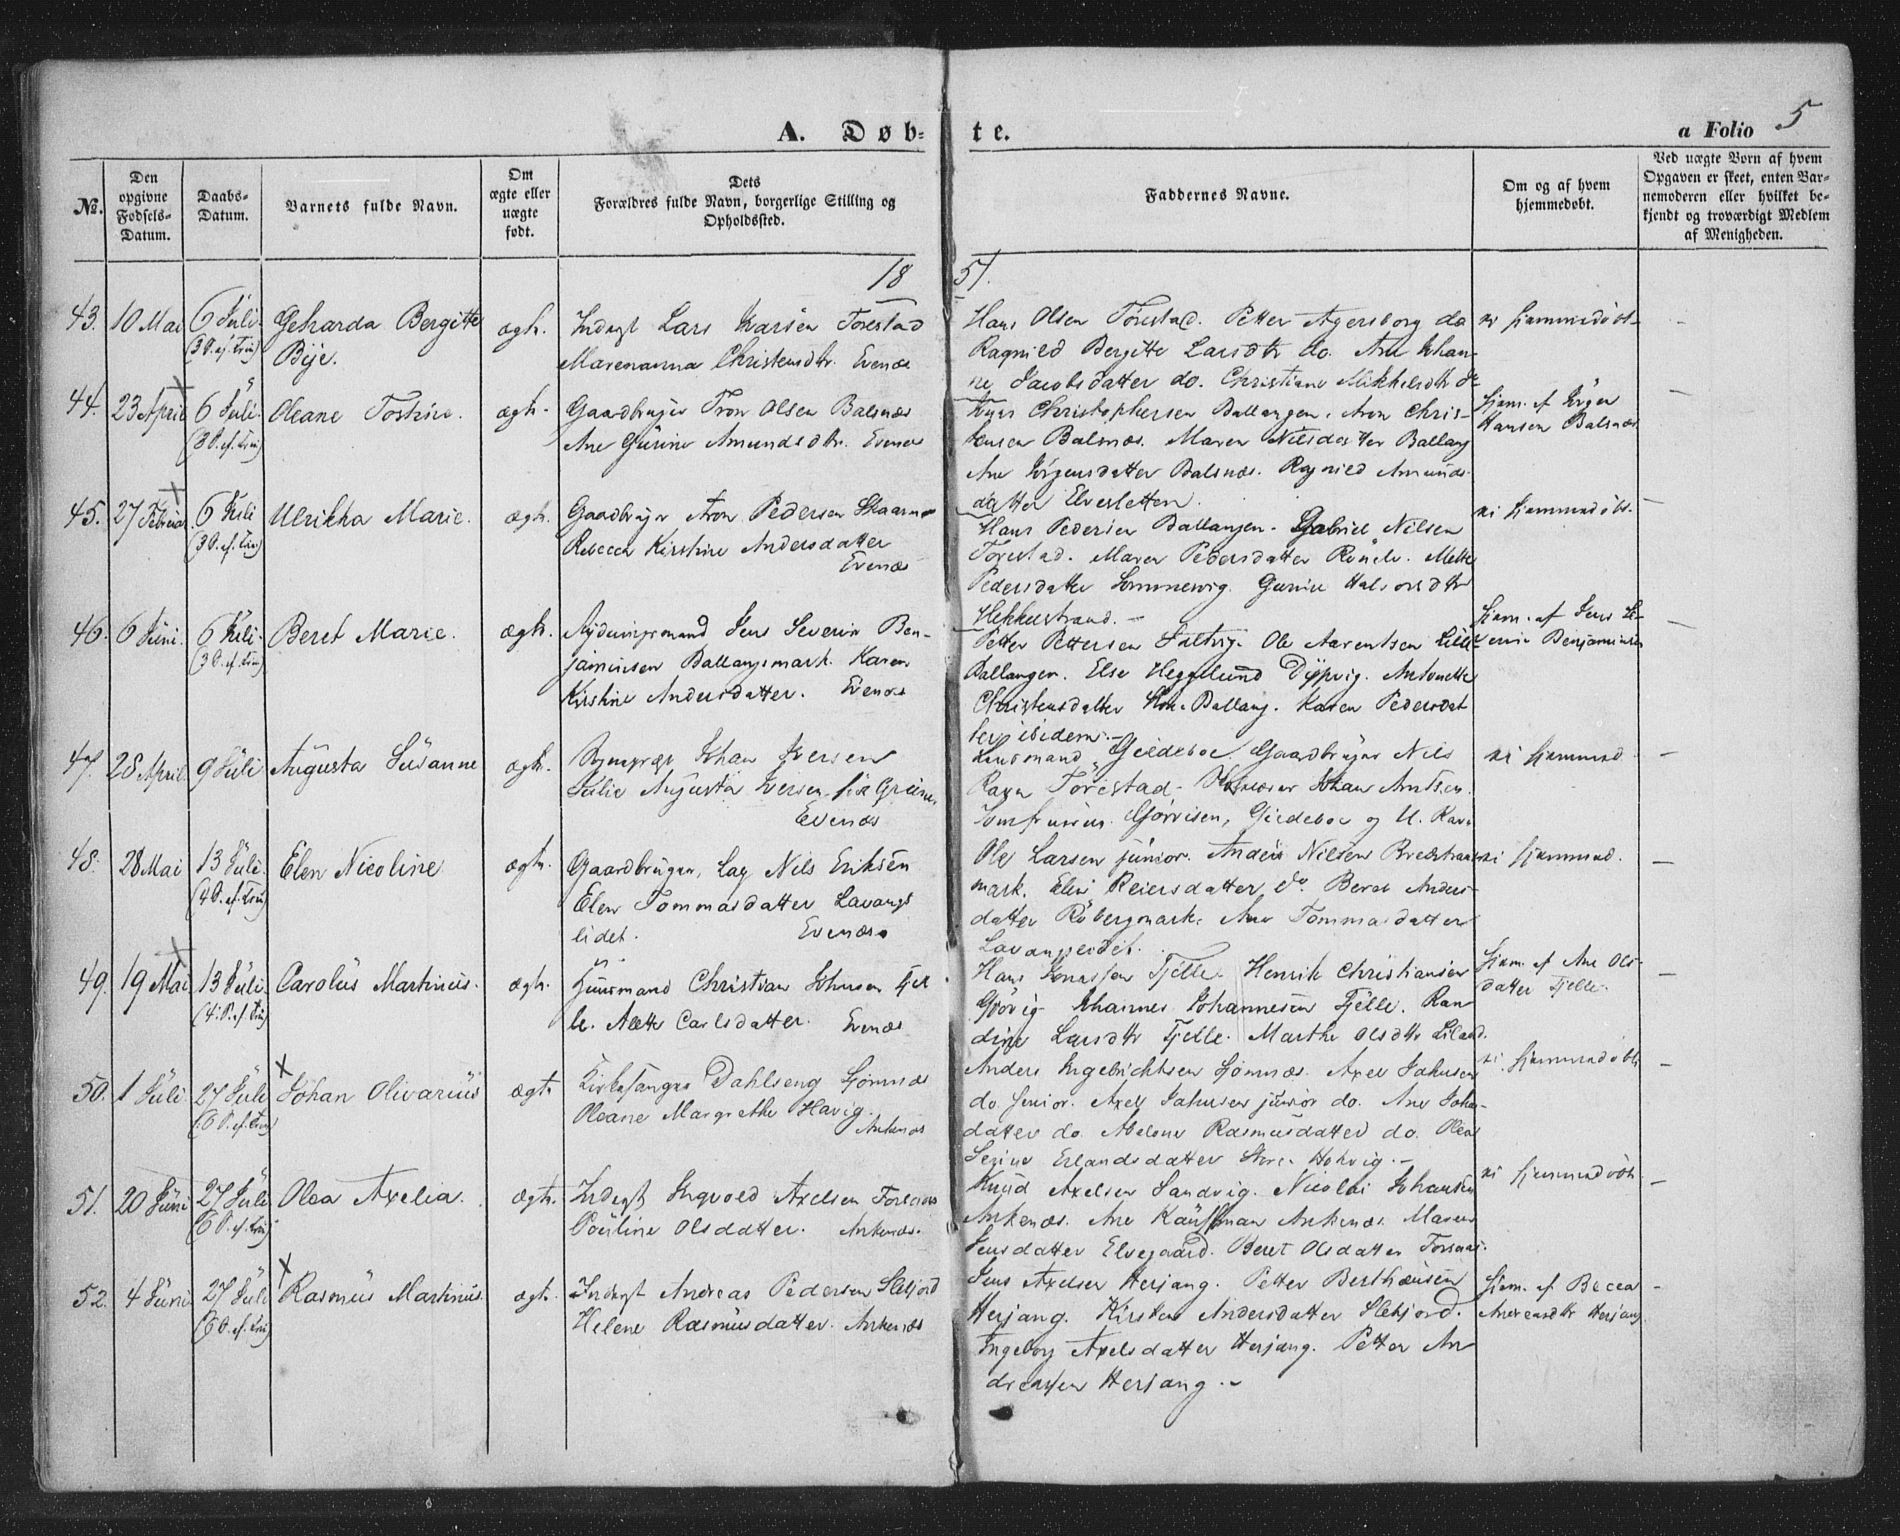 A. Døb-
te.
a Folio 5
No.
Den opgivne Fødsels-Datum.
Daabs-Datum.
Barnets fulde Navn.
Om ægte eller uægte født.
Dets Forældres fulde Navn, borgerlige Stilling og Opholdssted.
Faddernes Navne.
Om og af hvem hjemmedøbt.
Ved uægte Børn af hvem Opgaven er skeet, enten Barnemoderen eller hvilket bekjendt og troværdigt Medlem af Menigheden.
18
51.
43. 10 Mai 6 Juli Geharda Bergitte ægt.
(3 S. ef. Trin) Bye.
Indagt Lars Evenæs
Marenanna Christensdtr. Evenæs
Hans Olsen Forestad. Petter Agersborg do
Ragnild Bergitte Larsdtr do. Ane Johan-
ne Jacobsdatter do. Christiane Mikkelsdtr do
ei hjemmedøbt
44. 23 April 6 Juli Oleane ægt.
(3 S. ef. Trin)
Gaardbruger Tron Olsen Balsnæs
Ane Gurine Amundsdtr. Evenæs
Christophersen Ballangen. Aron Chris-
tensen Balsnæs. Maren Nilsdatter Ballang
Ane Jörgensdatter Balsnæs. Ragnild Amunds-
datter Elvesletten.
hjem. af
Hansen Balsnæs
45. 27 Februar 6 Juli Ulrikka Marie. ægt.
(3 S. ef. Trin)
Gaardbruger Aron Pedersen
Rebecca Kirstine Andersdatter
Evenæs
Hans Pedersen Ballangen. Gabriel Nilsen
Forestad. Maren Pedersdatter Mette
Pedersdatter Halvorsdtr
Hekkestrand.
ei hjemmedøbt.
46. 6 Juni. 6 Juli Beret Marie. ægt.
(3 S. ef. Trin)
Rydningsmand Jens Severin Ben-
jaminsen Ballangsmark. Karen
Kirstine Andersdatter. Evenæs
Petter Pettersen Saltvig. Ole Aarentsen Lille
Ballangen. Else Hegglund Dypvig. Antonette
Christensdatter Ballang. Karen Pedersdat
ter ibidem.
hjem. af Jens Se-
verin Benjaminsen
47. 28 April 9 Juli Augusta Susanne ægt.
Johan Iversen
Julie Augusta Iversen
Evenæs
Lensmand Gieldeboe. Gaardbruger Nils
Ravn Forestad. Johan Arntsen.
Gieldeboe og U. Ravn
ei hjemmed.
48. 28 Mai 13 Juli Elen Nicoline ægt.
(4 S. ef. Trin)
Gaardbruger, Lap Nils Eriksen
Elen Tommasdatter Lavangs
eidet. Evenæs.
Ole Larsen junior. Anders Nilsen
mark. Elen Reiersdatter do. Beret Anders-
datter Röbergmark. Ane Tommasdatter
Lavangseidet.
ei hjemmed.
49. 19 Mai 13 Juli Carolus Martinus. ægt.
(4 S. ef. Trin)
Huusmand Christian Johnsen Fjel
le. Alette Carlsdatter. Evenæs
Hans Jonassen Fjelle. Henrik Christiansen
Johannes Johannesen Fjelle. Ran-
dine Larsdtr Fjelle. Marthe Olsdtr Liland.
hjem. af Ane Ols-
datter Fjelle.
50. 1 Juli 27 Juli Johan Olivarius ægt.
(6 S. ef. Trin)
Kirkesanger Dahlseng
Oleane Margrethe Havig.
Ankenæs
Anders Ingebrichtsen Axel Jakusen
do senior. Axel Jakusen junior do. Ane Johns-
datter do. Abelone Rasmusdatter do. Olea
Serine Erlandsdatter
ei hjemmedøbt
51. 20 Juni 27 Juli Olea Axelia. ægt.
(6 S. ef. Trin)
Indagt Ingvold Axelsen
Pouline Olsdatter. Ankenæs.
Knud Axelsen Sandvig. Nicolai Johansen
Ankenæs. Ane Kauffman Ankenæs. Maren
Jensdatter Elvegaard. Beret Olsdatter Forsnæs.
ei hjemmedøbt
52. 4 Juni 27 Juli Rasmus Martinus. ægt.
(6 S. ef. Trin)
Indagt Andreas Pedersen Slebjord
Helene Rasmusdatter. Ankenæs
Jens Axelsen Herjang. Petter Berthæusen
Herjang. Kirsten Andersdatter Slebjord.
Ingeborg Axelsdatter Herjang. Petter An
dreassen Herjang.
hjem. af Becca
Andreasdtr Herjang